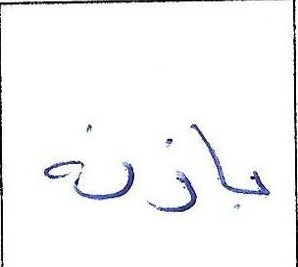 بازنه